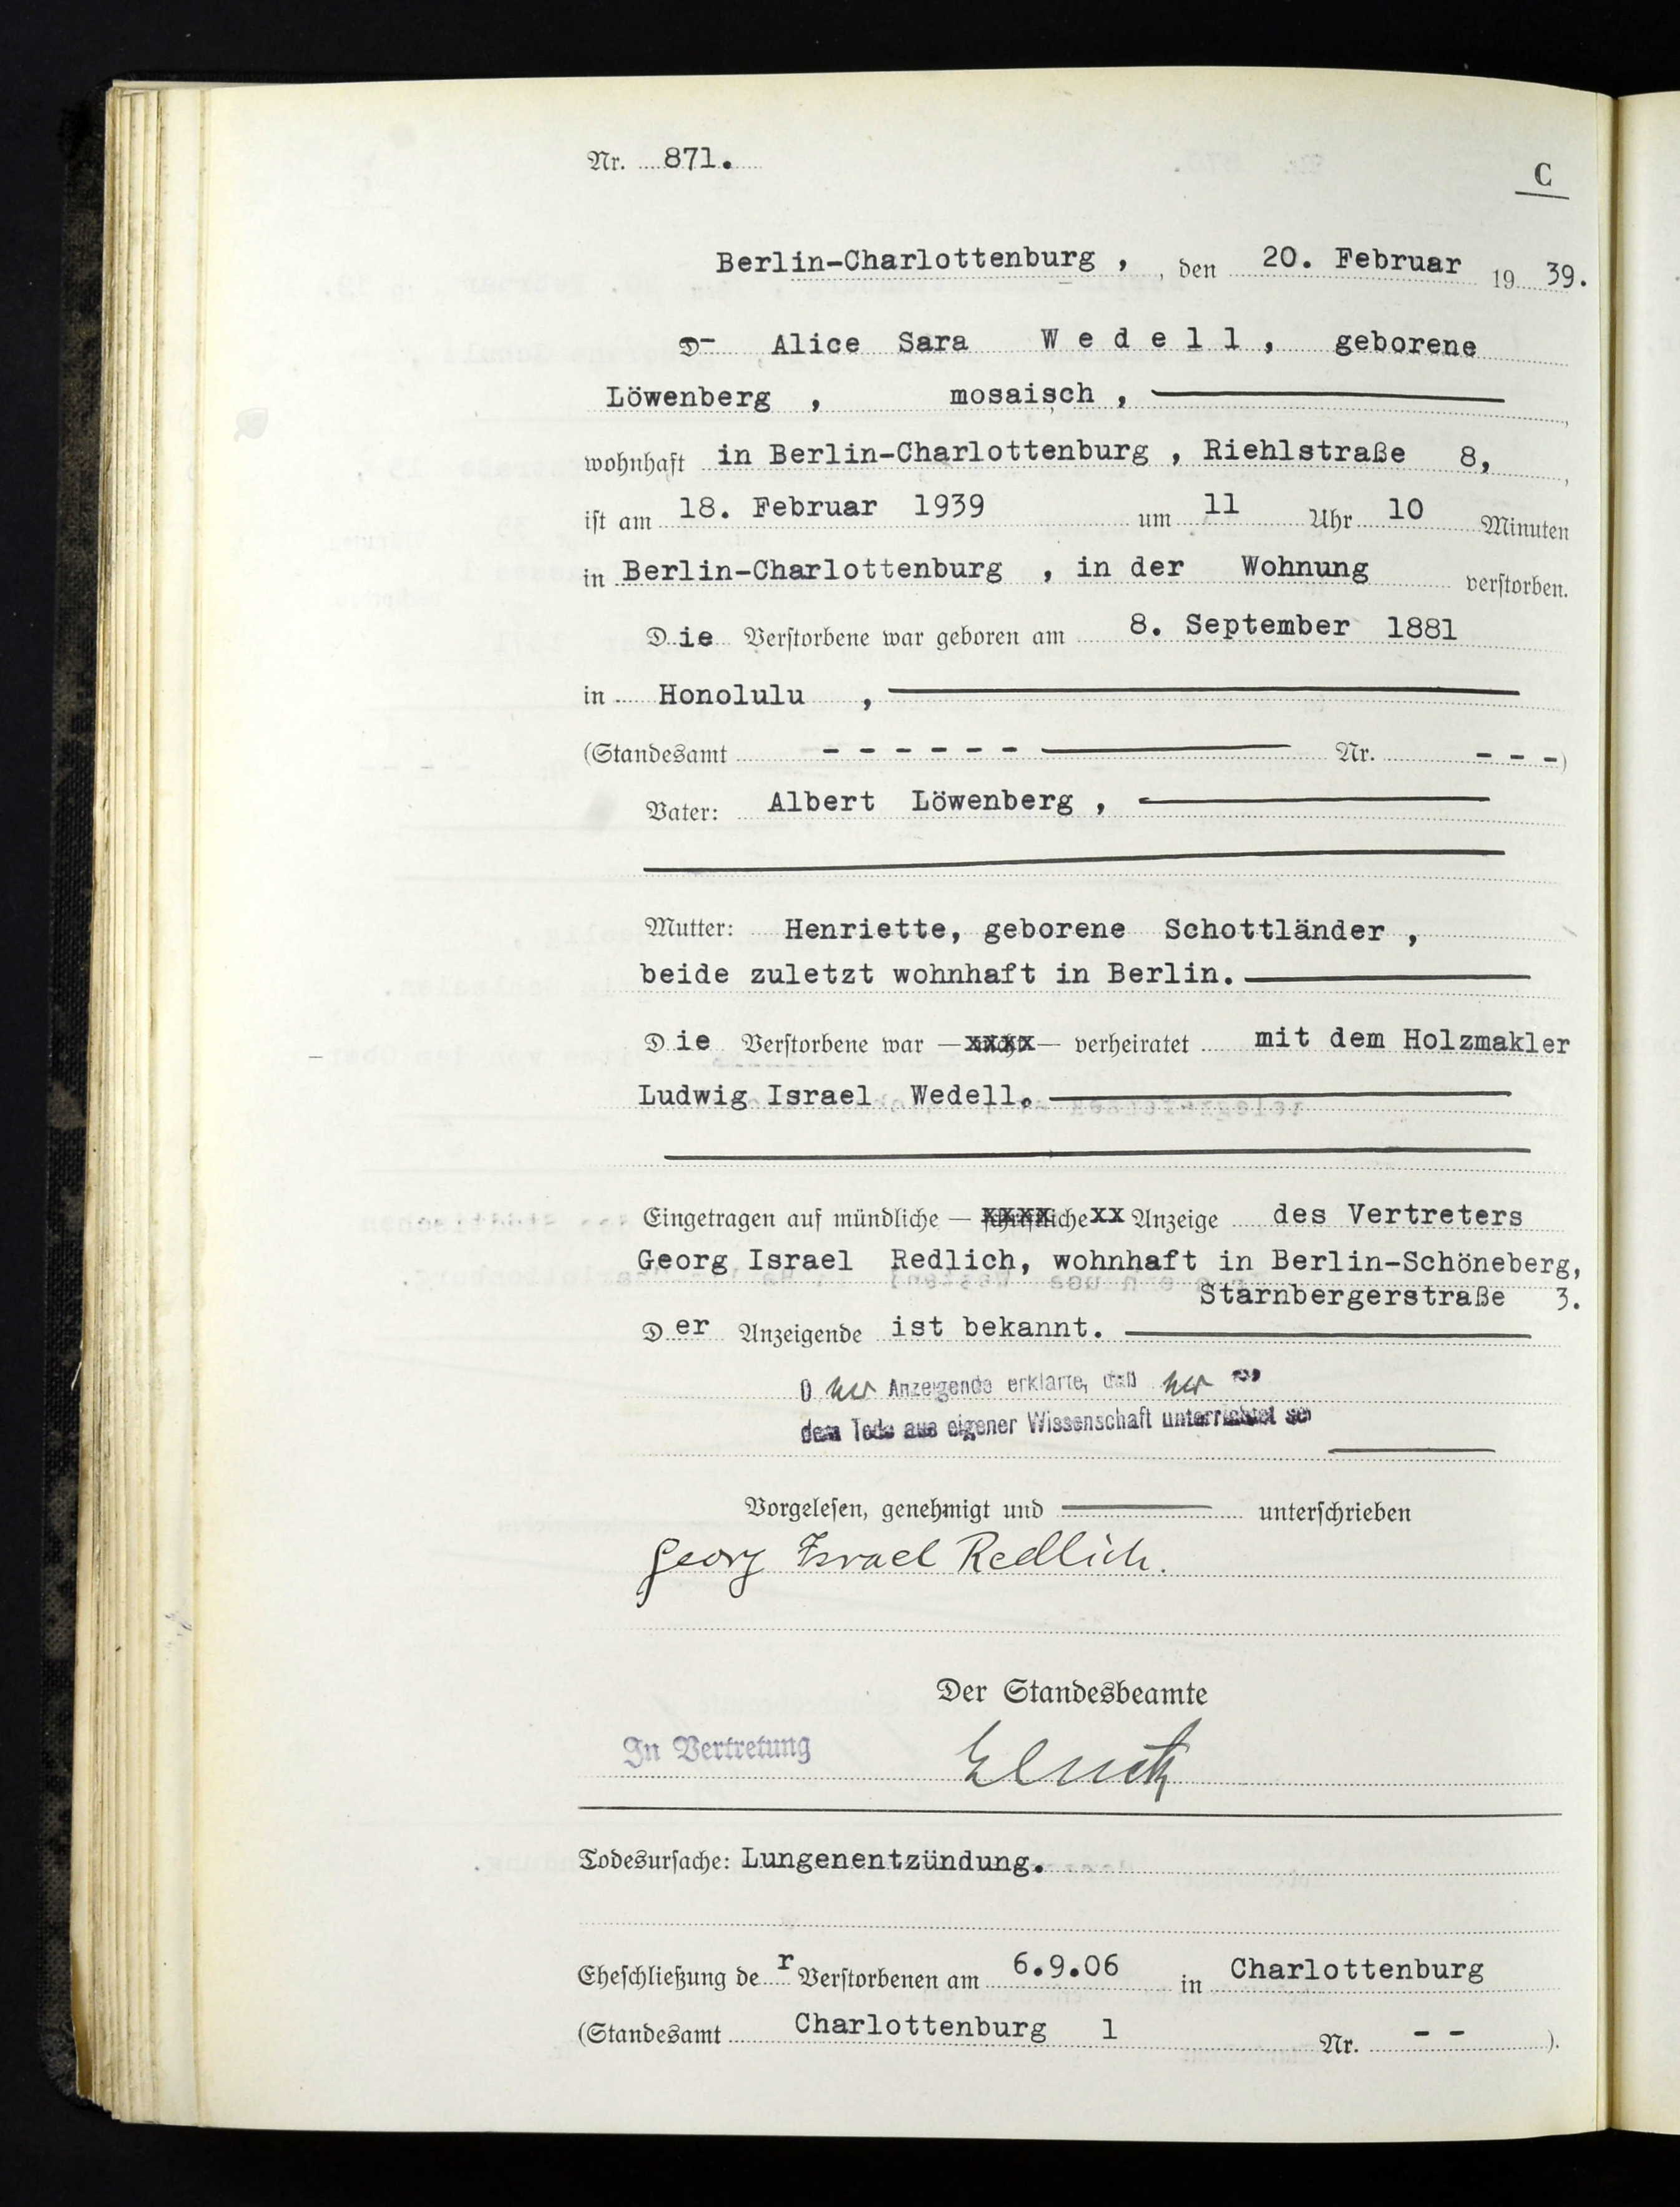 Nr. 871.
C
Berlin-Charlottenburg , , den 20. Februar 19 39.
D- Alice Sara W e d e l l , geborene
Löwenberg , mosaisch , ,
wohnhaft in Berlin-Charlottenburg , Riehlstraße 8, ,
ist am 18. Februar 1939 um 11 Uhr 10 Minuten
in Berlin-Charlottenburg , in der Wohnung verstorben.
Die Verstorbene war geboren am 8. September 1881
in Honolulu ,
(Standesamt - - - - - - Nr. - - -)
Vater: Albert Löwenberg ,
Mutter: Henriette, geborene Schottländer ,
beide zuletzt wohnhaft in Berlin.
Die Verstorbene war — xxxx — verheiratet mit dem Holzmakler
Ludwig Israel Wedell.
Eingetragen auf mündliche — xxxxliche xx Anzeige des Vertreters
Georg Israel Redlich, wohnhaft in Berlin-Schöneberg,
Starnbergerstraße 3.
Der Anzeigende ist bekannt.
D er Anzeigende erklärte, daß er von
dem Tode aus eigener Wissenschaft unterrichtet sei
Vorgelesen, genehmigt und unterschrieben
Georg Israel Redlich.
Der Standesbeamte
In Vertretung
Todesursache: Lungenentzündung.
Eheschließung der Verstorbenen am 6.9.06 in Charlottenburg
(Standesamt Charlottenburg 1 Nr. - - ).